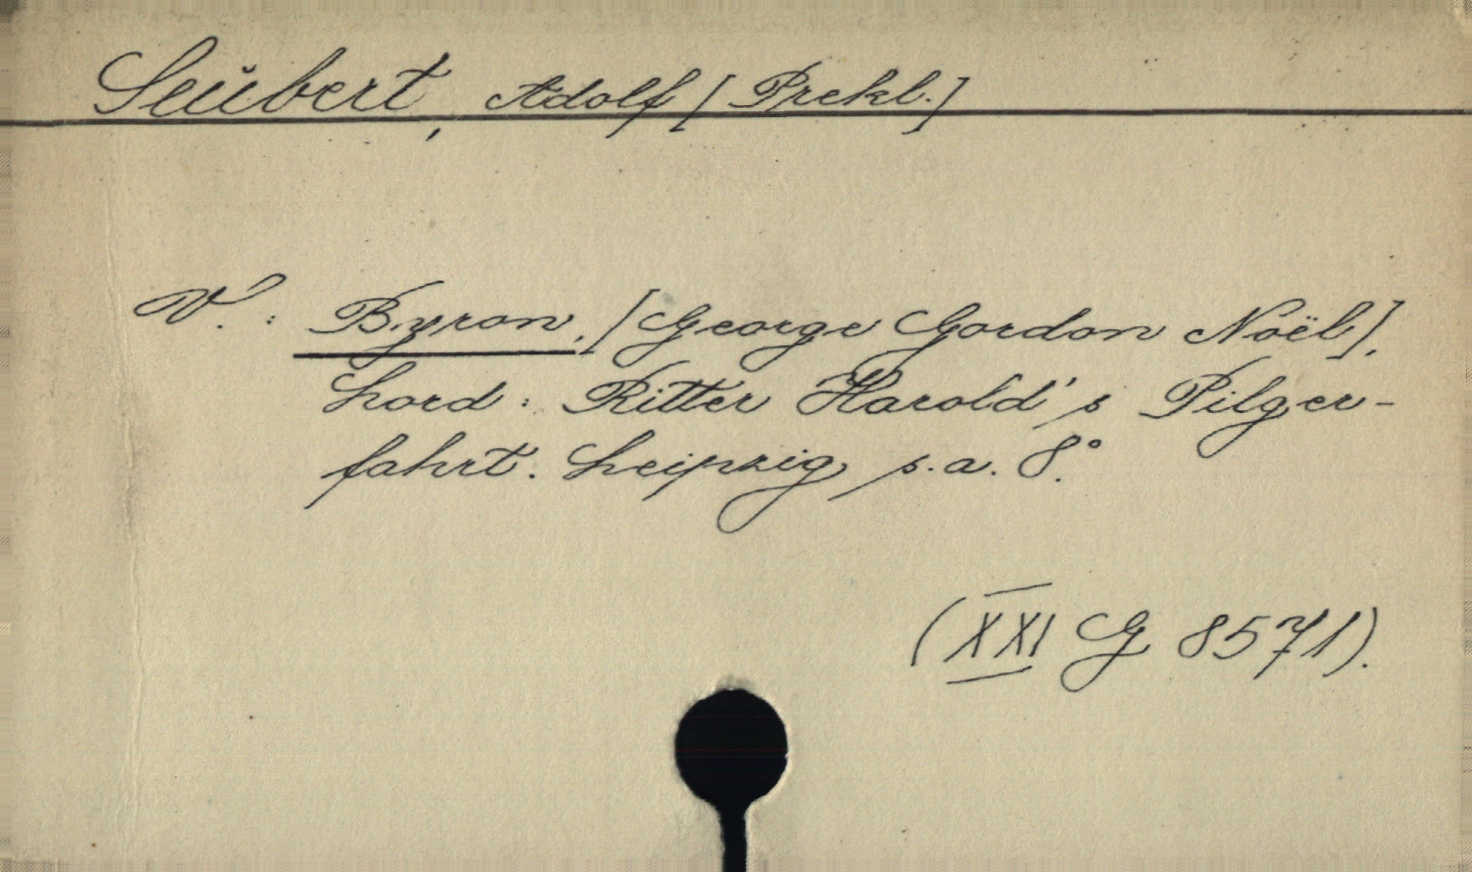 Seubert, Adolf [Prekl.]
V.: Byron, [George Gordon Noël],
Lord: Ritter Harold's Pilger-
fahrt. Leipzig, s.a. 8°.
(XXI G 8571).